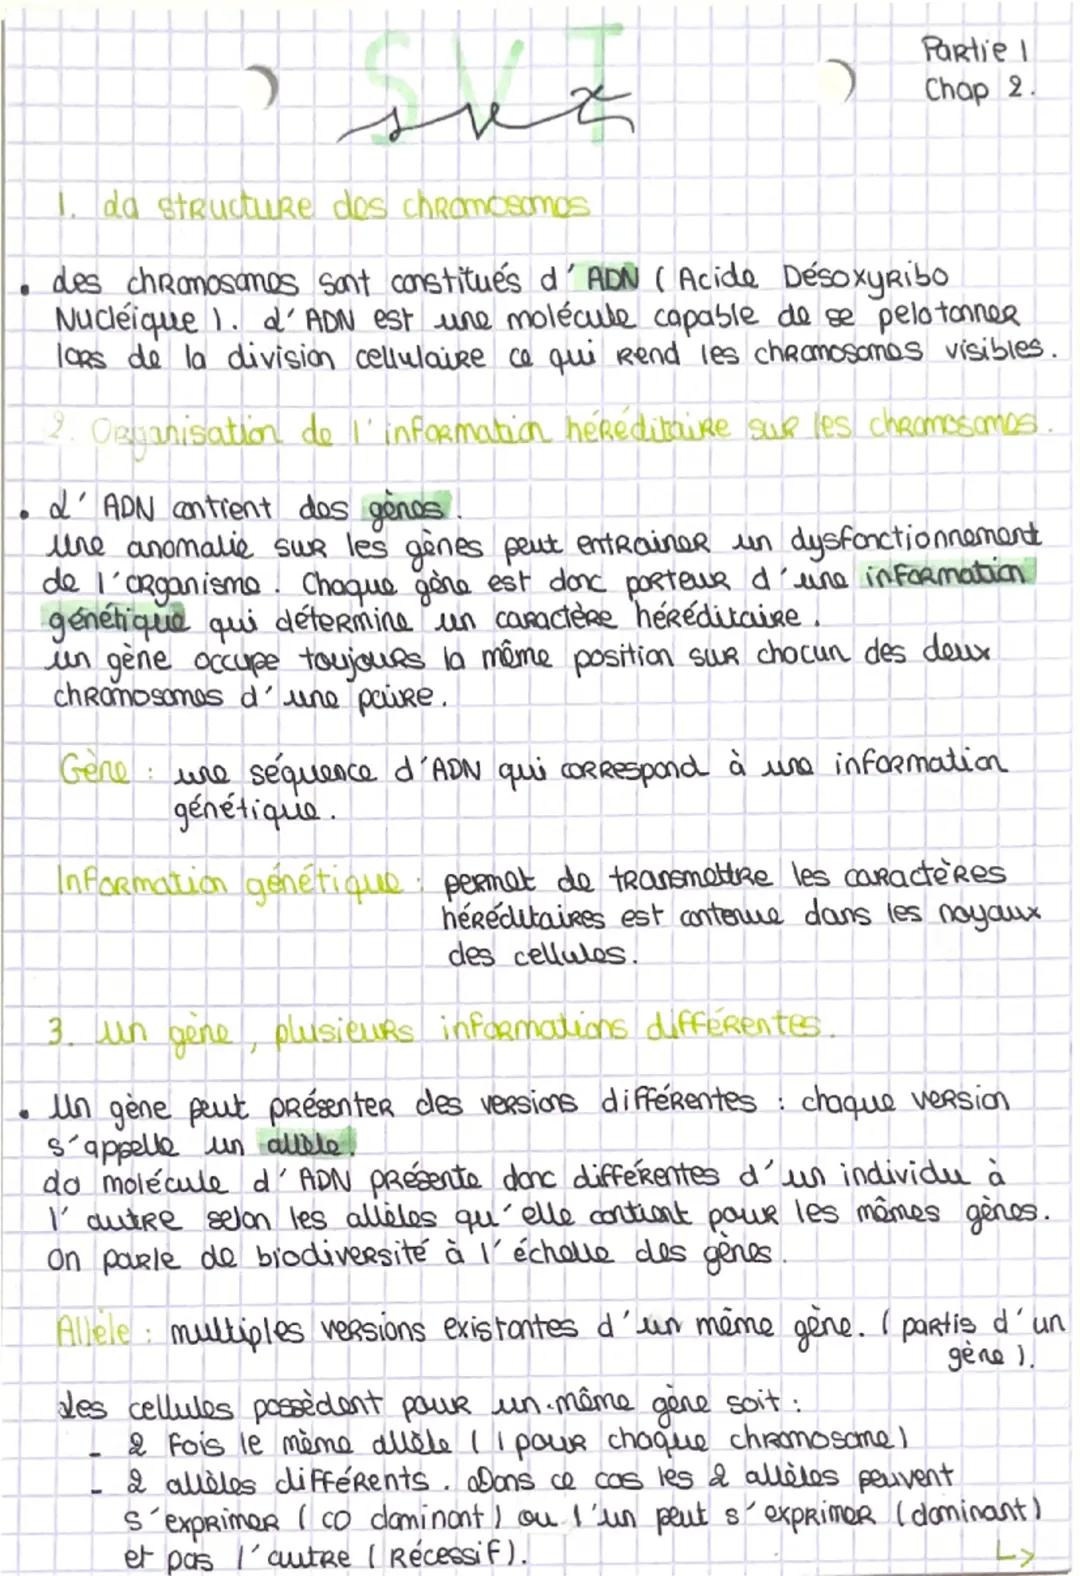 Partie 1
SVT
svt
Chap 2.
1. La structure des chromosomes
• Les chromosomes sont constitués d'ADN (Acide DésoxyRibo
Nucléique). L'ADN est une molécule capable de se pelotonner
lors de la division cellulaire ce qui rend les chromosomes visibles.
2. Organisation de l'information héréditaire sur les chromosomes.
• L'ADN contient des gènes.
Une anomalie sur les gènes peut entrainer un dysfonctionnement
de l'organisme. Chaque gène est donc porteur d'une information
génétique qui détermine un caractère héréditaire.
Un gène occupe toujours la même position sur chacun des deux
chromosomes d'une paire.
Gène : une séquence d'ADN qui correspond à une information
génétique.
Information génétique : permet de transmettre les caractères
héréditaires est contenue dans les noyaux
des cellules.
3. Un gène, plusieurs informations différentes.
• Un gène peut présenter des versions différentes : chaque version
s'appelle un allèle.
La molécule d'ADN présente donc différentes d'un individu à
l'autre selon les allèles qu'elle contient pour les mêmes gènes.
On parle de biodiversité à l'échelle des gènes.
Allèle : multiples versions existantes d'un même gène. (partis d'un
gène).
Les cellules possèdent pour un même gène soit :
- 2 fois le même allèle (1 pour chaque chromosome)
- 2 allèles différents. Dans ce cas les 2 allèles peuvent
s'exprimer (co dominant) ou l'un peut s'exprimer (dominant)
et pas l'autre (Récessif).